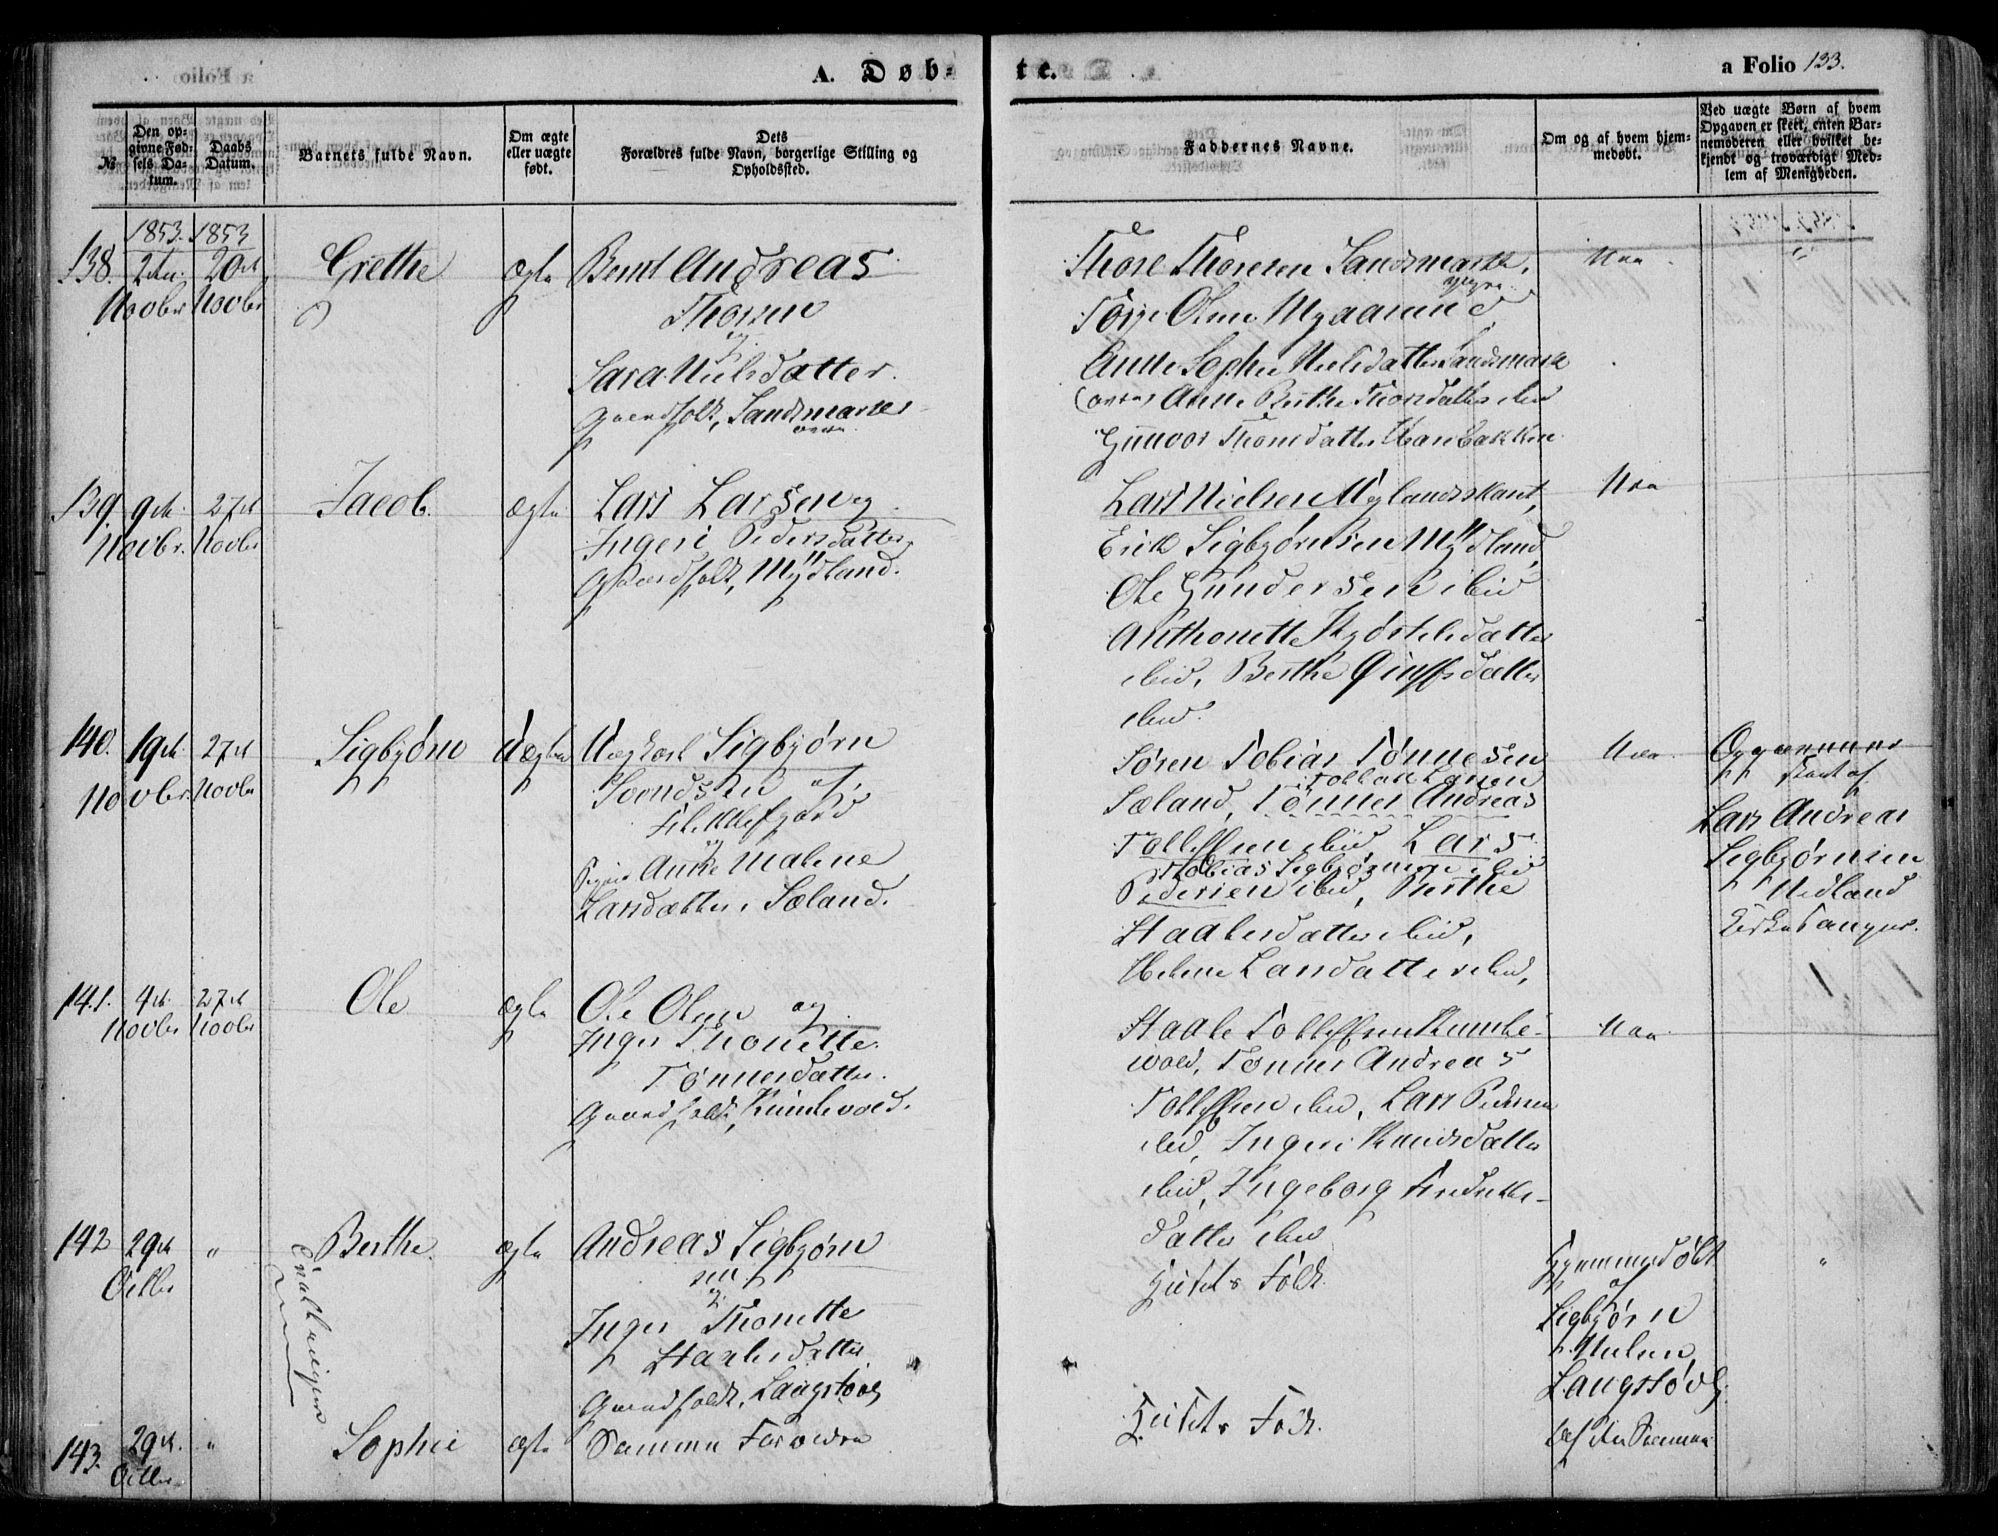 A. Døb-
te.
a Folio 133.
№
Den op-
givne Fød-
sels Da-
tum.
Daabs
Datum.
Barnets fulde Navn.
Om ægte
eller uægte
født.
Dets
Forældres fulde Navn, borgerlige Stilling og
Opholdssted.
Faddernes Navne.
Om og af hvem hjem-
medøbt.
Ved uægte Børn af hvem
Opgaven er skeet, enten Bar-
nemoderen eller hvilket be-
kjendt og troværdigt Med-
lem af Menigheden.
1853. 1853
138. 20de
Novbr Novbr
Grethe
ægte
Bernt Andreas
Thorsen
og
Sara Nielsdatter.
Gaardfolk, Landsmarke
Thore Thoresen Landsmarke,
Torje Olsen
Anne Sophie Nielsdatter Landsmark
Anne Berthe Thorsdatter ibid
Gunvor Thorsdatter
139. 9de 27de
Novbr. Novbr
Jacob.
ægte
Lars Larsen og
Ingeri Pedersdatter,
Gaardfolk, Mydland.
Lars Nielsen Myglandskant,
Erik Sigbjørnsen Mydland,
Ole Gundersen ibid
Anthonette Kjøstelsdatter
ibid, Berthe
ibid.
140. 19de 27de
Novber Novbr
Sigbjørn
Uægte
Ungkarl Sigbjørn
Svendsen af
Flekkefjord
og
Pigen Anne Malene
Larsdatter, Sæland.
Søren Tobias Tønnesen
Sæland, Tønnes Andreas
Tollefsen ibid, Lars
Tobias Sigbjørnsen ibid
Pedersen ibid, Berthe
Staalesdatter ibid,
Helene Larsdatter ibid,
af
Lars Andreas
Sigbjørnsen
Midland
Kirkesanger.
141. 4de 27de
Novbr Novbr
Ole
ægte
Ole Olsen og
Inger Thonette
Tønnesdatter.
Gaardfolk, Kumlevold.
Staale Tollefsen Kumle-
vold, Tønnes Andreas
Tollefsen ibid, Lars Pedersen
ibid, Ingeri Knudsdatter
ibid, Ingeborg Fredrikke-
datter ibid
142 29de "
Octbr
Berthe.
ægte
Andreas Sigbjørn
sen
og
Inger Thonette
Staalesdatter
Gaardfolk, Laugstøvl
Husets Folk.
Hjemmedøbt
af
Sigbjørn
Nielsen
Laugstøvl.
"
143. 29de "
Octbr
Sophie
ægte
Samme Forældre
Husets Folk.
af den Samme